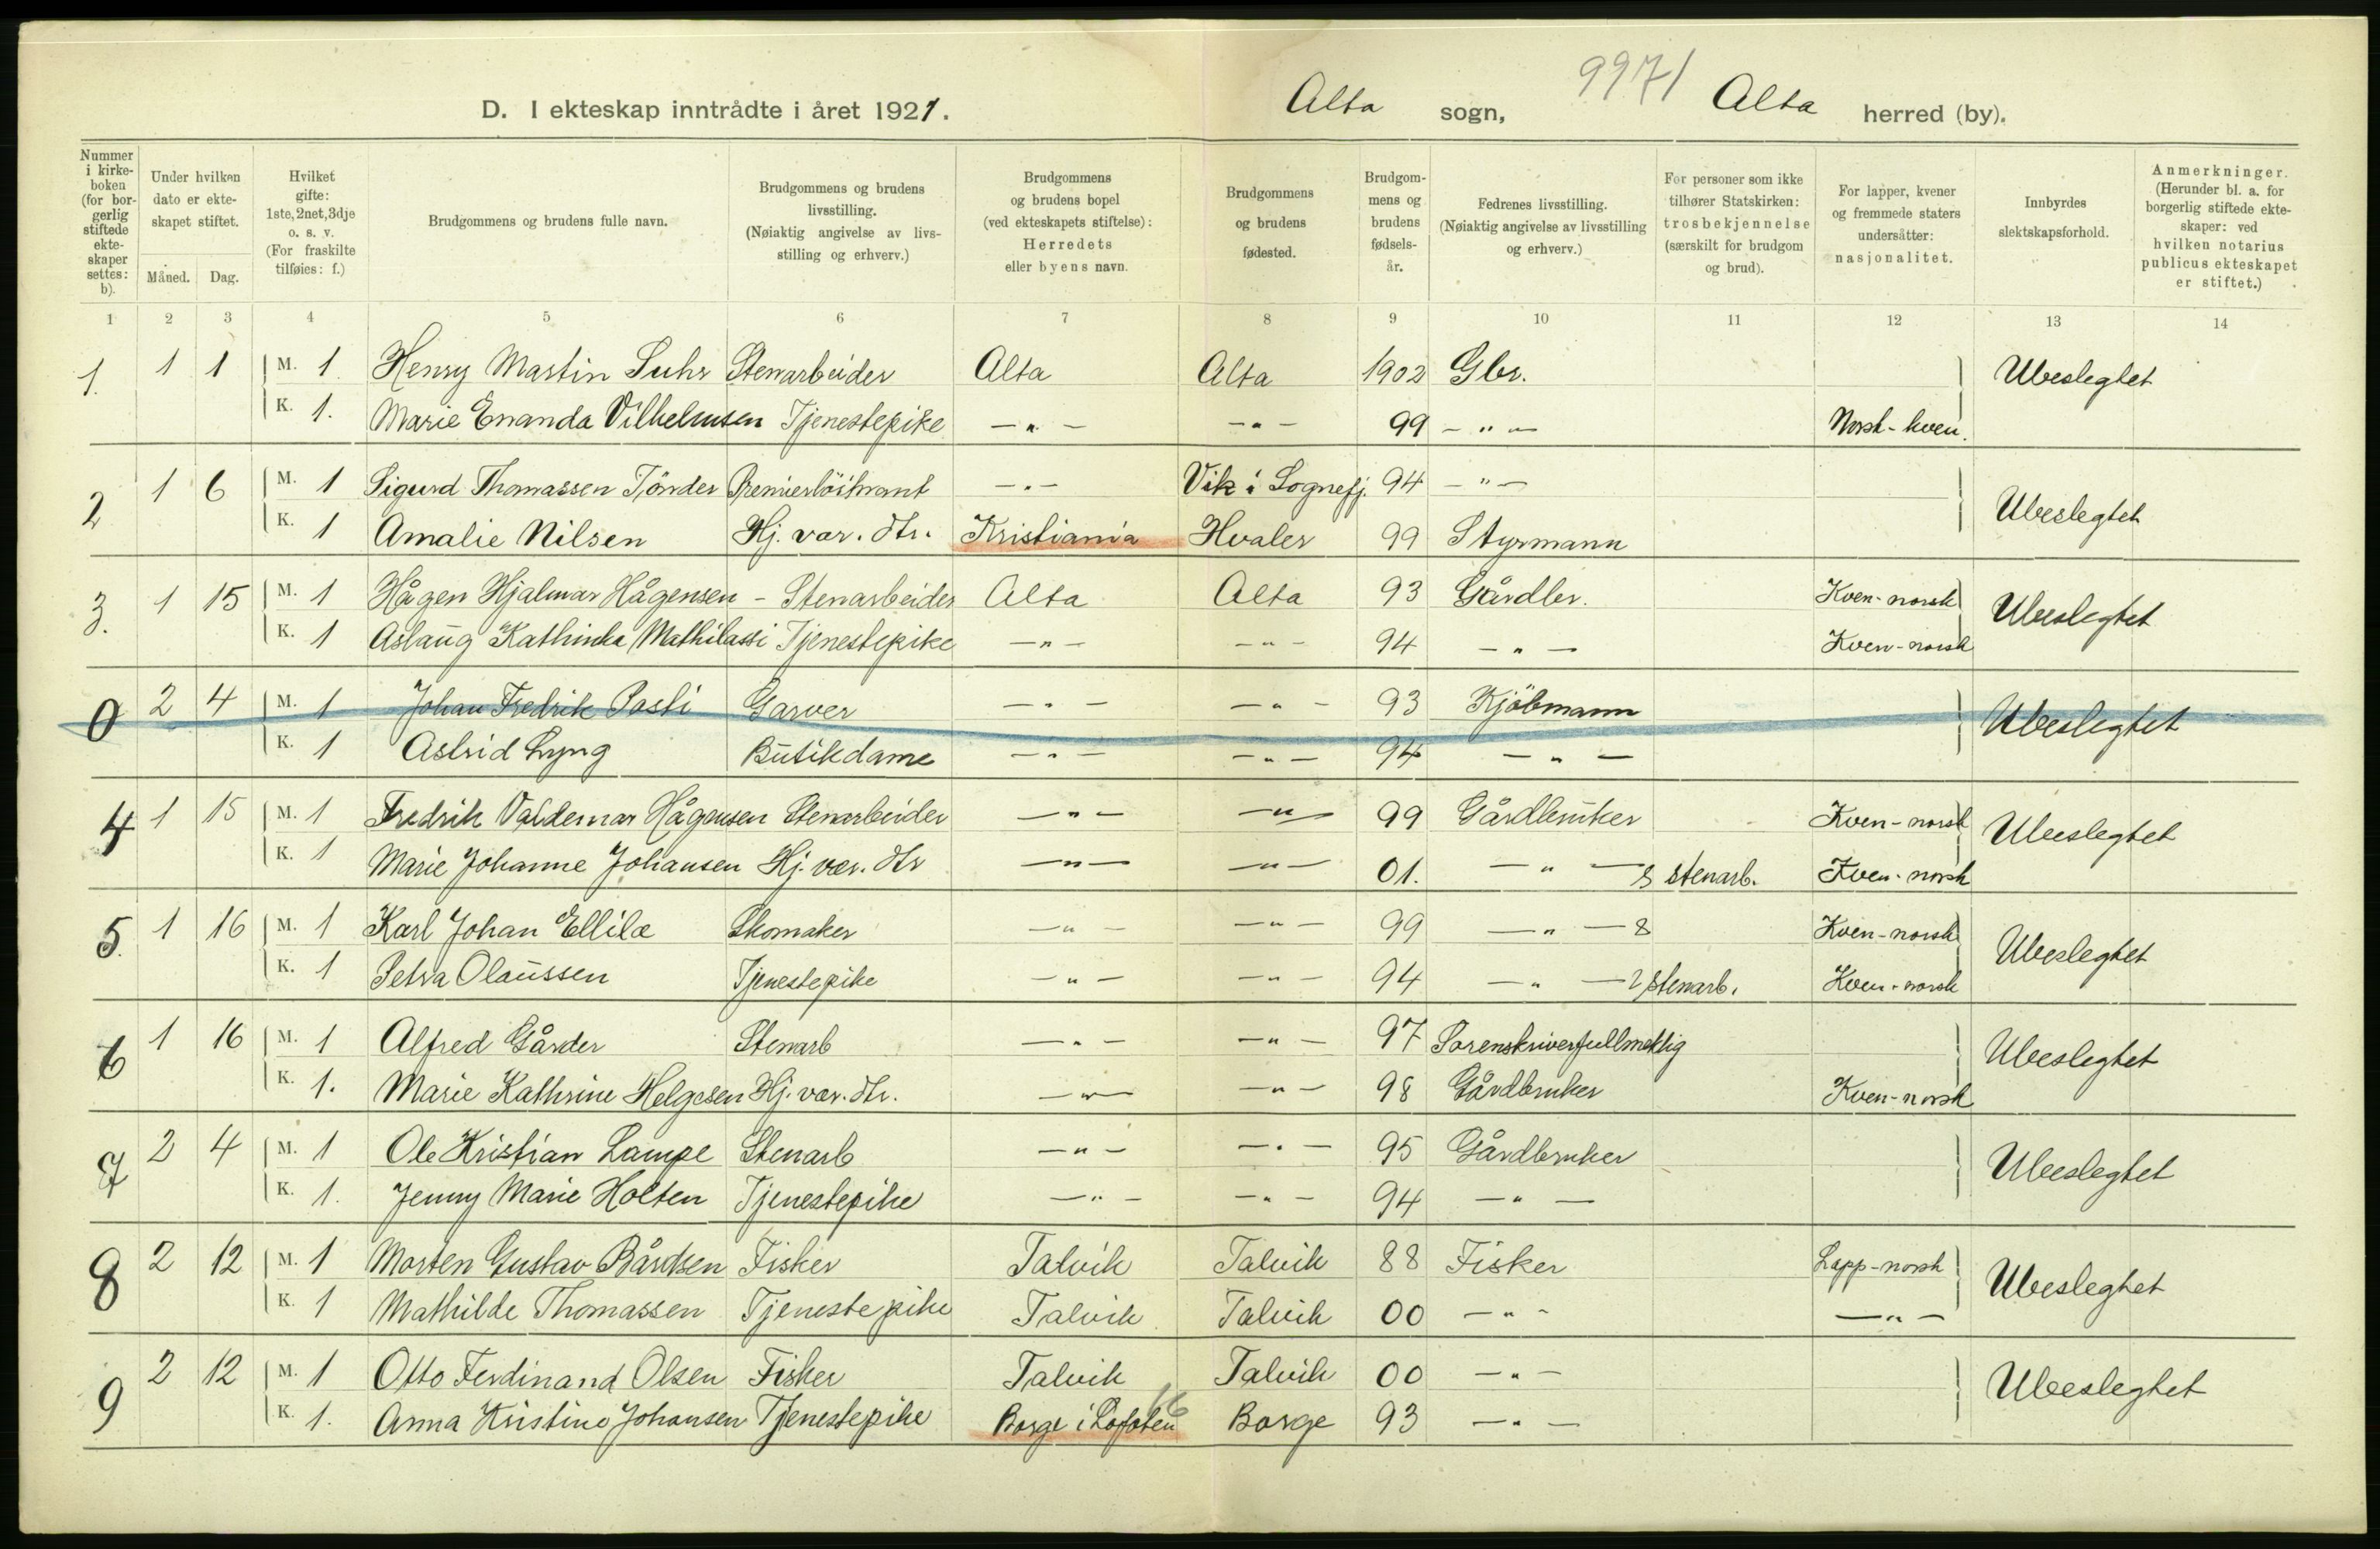 9971
D. I ekteskap inntrådte i året 1921. Alta sogn, Alta herred (by).
Nummer i kirke-boken (for bor-gerlig stiftede ekte-skaper settes: b).
Under hvilken dato er ekte-skapet stiftet.
Måned. Dag.
Hvilket gifte: 1ste, 2net, 3dje o. s. v. (For fraskilte tilføies: f.)
Brudgommens og brudens fulle navn.
Brudgommens og brudens livsstilling. (Nøiaktig angivelse av livs-stilling og erhverv.)
Brudgommens og brudens bopel (ved ekteskapets stiftelse): Herredets eller byens navn.
Brudgommens og brudens fødested.
Brudgom-mens og brudens fødsels-år.
Fedrenes livsstilling. (Nøiaktig angivelse av livsstilling og erhverv.)
For personer som ikke tilhører Statskirken: trosbekjennelse (særskilt for brudgom og brud).
For lapper, kvener og fremmede staters undersåtter: nasjonalitet.
Innbyrdes slektskapsforhold.
Anmerkninger. (Herunder bl. a. for borgerlig stiftede ekte-skaper: ved hvilken notarius publicus ekteskapet er stiftet.)
1 2 3 4 5 6 7 8 9 10 11 12 13 14
1. 1 1 M. 1 Henry Martin Suhr Stenarbeider Alta Alta 1902 Gbr. Ubeslegtet
K. 1. Marie Emanda Vilhelmsen Tjenestepike — " — — " — 99 — " — Norsk-kven.
2 1 6 M. 1 Sigurd Thomassen Tönder Premierlöitnant — " — Vik i Sognefj. 94 — " — Ubeslegtet
K. 1 Amalie Nilsen Hj. vær. dtr. Kristiania Hvaler 99 Styrmann
3. 1 15 M. 1 Hågen Hjalmar Hågensen - Stenarbeider Alta Alta 93 Gårdbr. Kven-norsk Ubeslegtet
K. 1 Aslaug Kathinka Mathilassi Tjenestepike — " — — " — 94 — " — Kven-norsk
0 2 4 M. 1 Johan Fredrik Pasti Garver — " — — " — 93 Kjöbmann Ubeslegtet
K. 1 Astrid Lyng Butikdame — " — — " — 94 — " —
4 1 15 M. 1 Fredrik Valdemar Hågensen Stenarbeider — " — — " — 99 Gårdbruker Kven-norsk Ubeslegtet
K. 1 Marie Johanne Johansen Hj. vær. dtr — " — — " — 01. — " — & stenarb. Kven-norsk
5. 1 16 M. 1 Karl Johan Ellilæ Skomaker — " — — " — 99 — " — 8 Kven-norsk Ubeslegtet
K. 1 Petra Olaussen Tjenestepike — " — — " — 94 — " — & stenarb. Kven-norsk
6 1 16 M. 1 Alfred Gårder Stenarb — " — — " — 97 Sorenskriverfullmektig Ubeslegtet
K. 1. Marie Kathrine Helgesen Hj. vær. dtr. — " — — " — 98 Gårdbruker Kven-norsk
7 2 4 M. 1 Ole Kristian Lampe Stenarb — " — — " — 95 Gårdbruker Ubeslegtet
K. 1. Jenny Marie Holten Tjenestepike — " — — " — 94 — " —
8 2 12 M. 1 Morten Gustav Bårdsen Fisker Talvik Talvik 88 Fisker Lapp-norsk Ubeslegtet
K. 1 Mathilde Thomassen Tjenestepike Talvik Talvik 00 — " — — " —
9 2 12 M. 1 Otto Ferdinand Olsen Fisker Talvik Talvik 00 — " — Ubeslegtet
K. 1. Anna Kristine Johansen Tjenestepike Borge i Lofoten Borge 93 — " —